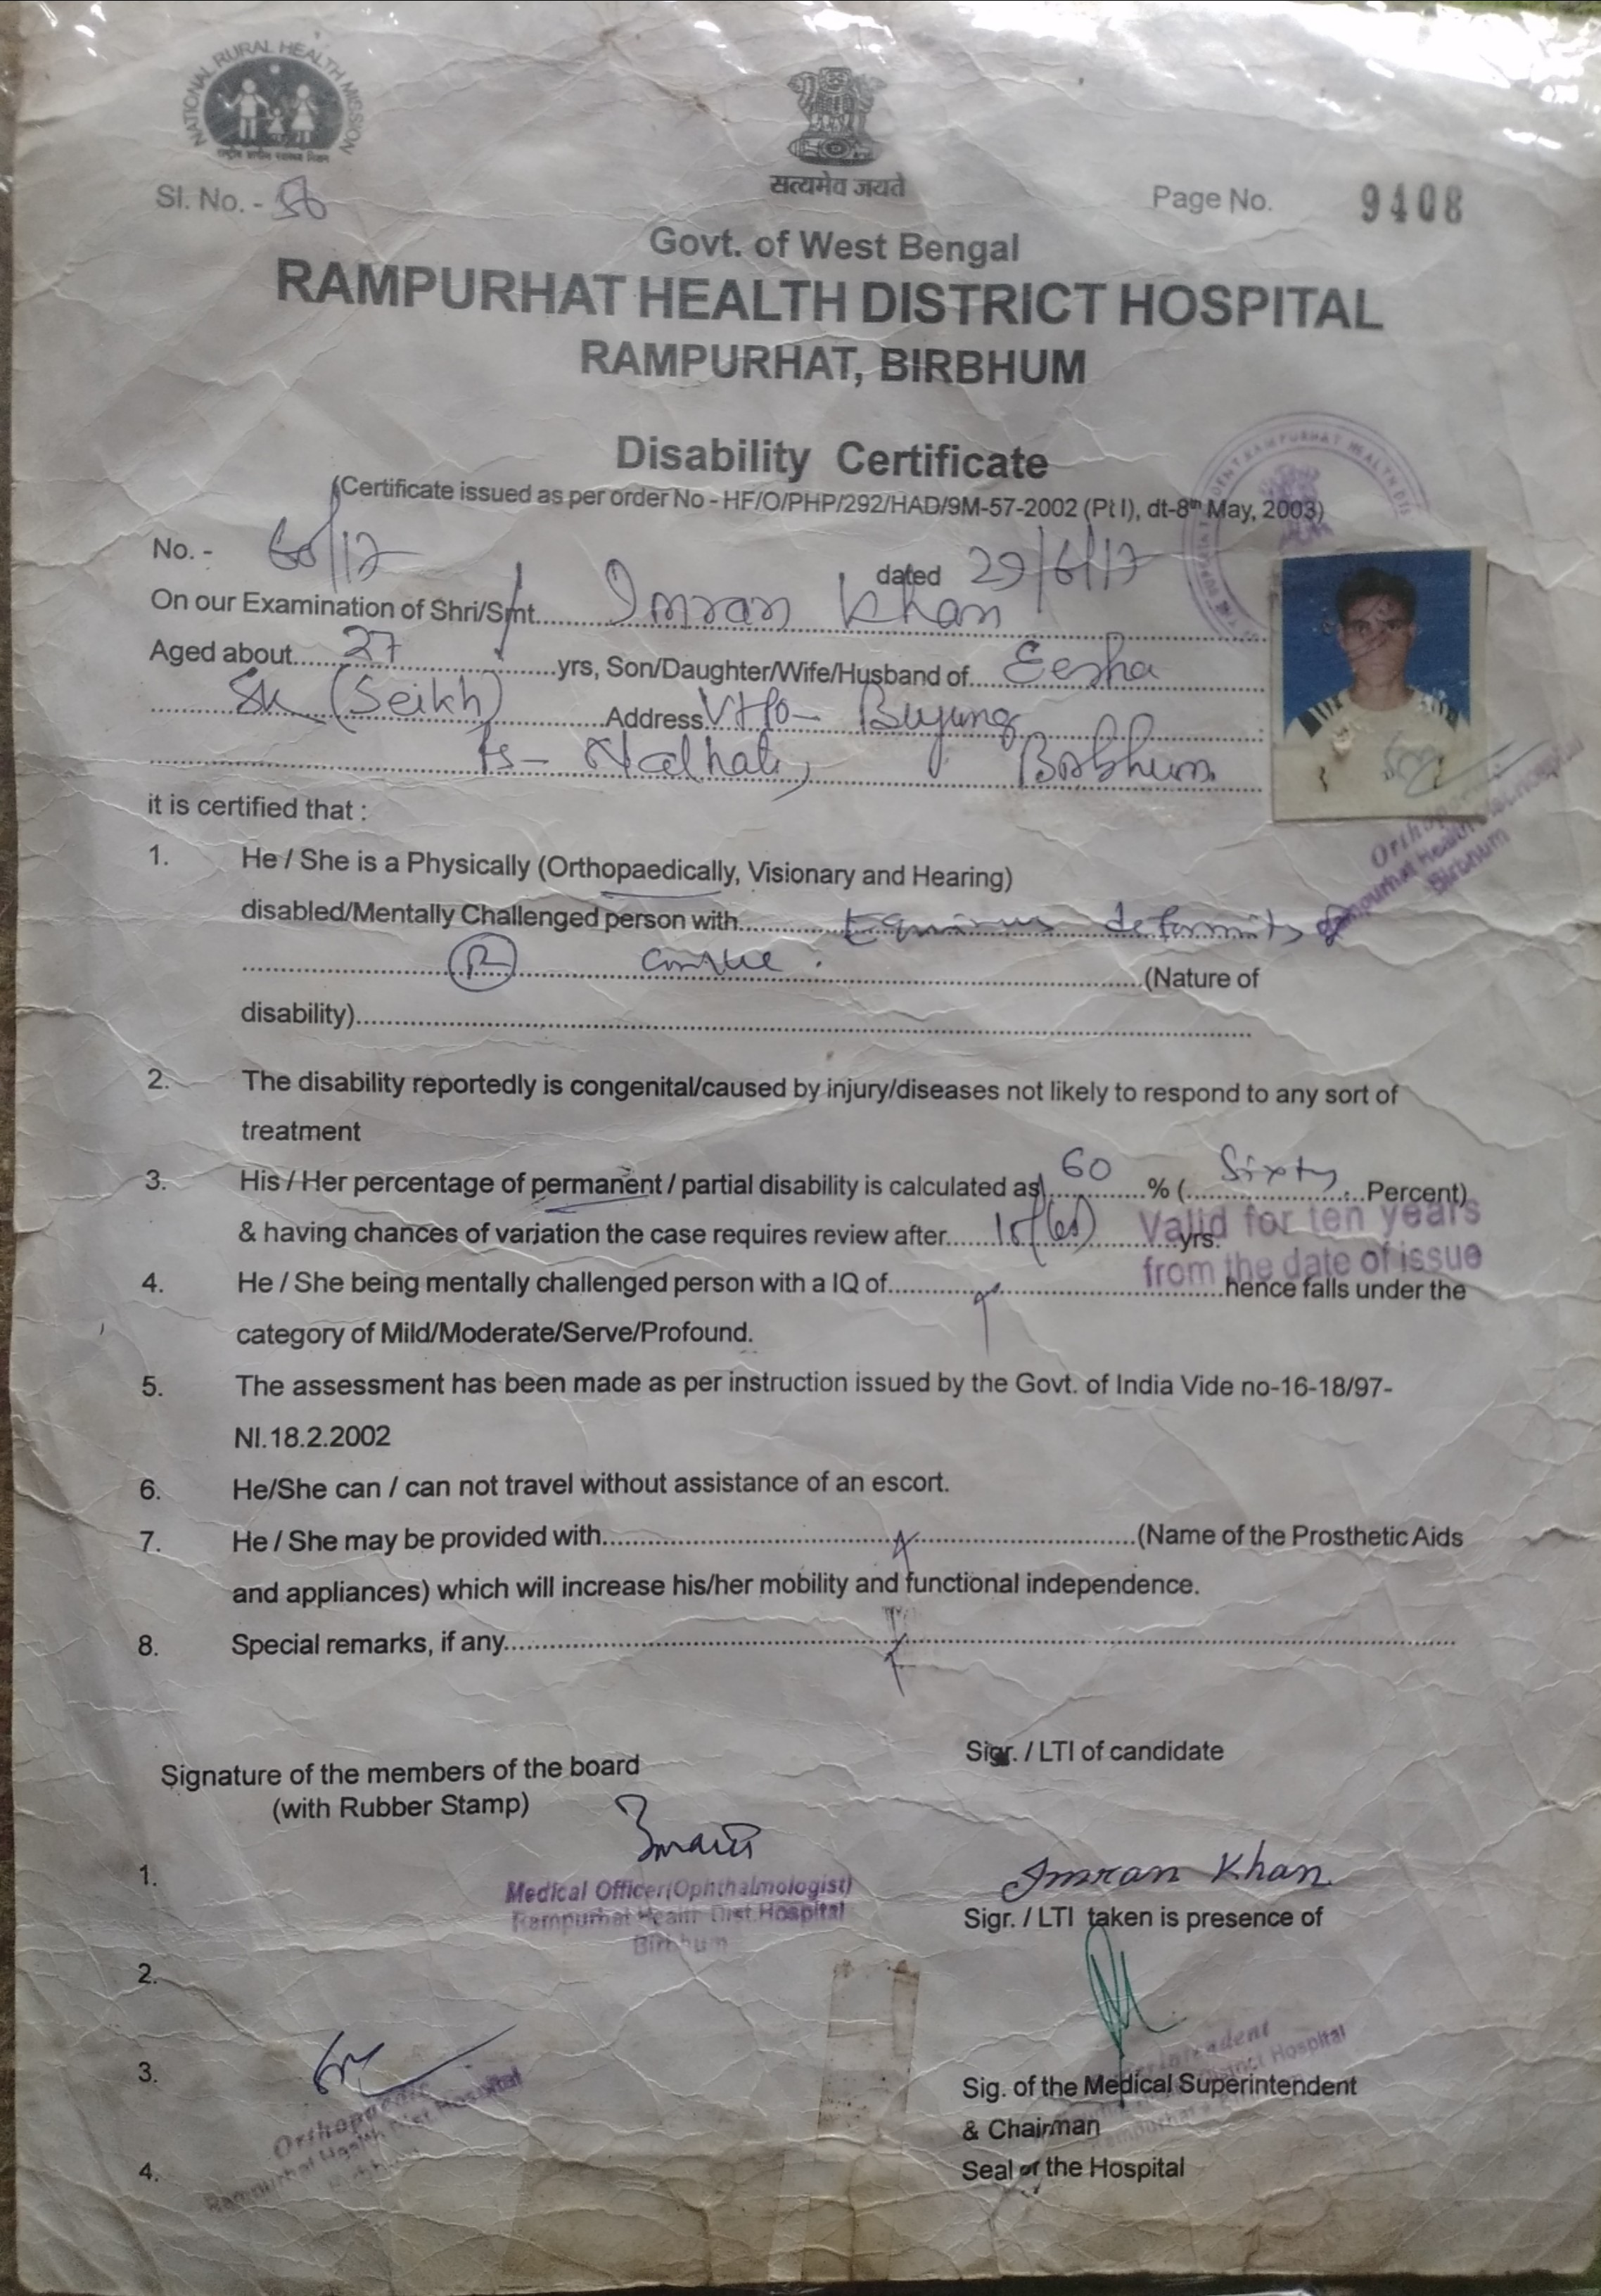 NATIONAL RURAL HEALTH MISSION
राष्ट्रीय ग्रामीण स्वास्थ्य मिशन
सत्यमेव जयते
Sl. No. - 56
Page No. 9408
Govt. of West Bengal
RAMPURHAT HEALTH DISTRICT HOSPITAL
RAMPURHAT, BIRBHUM
Disability Certificate
(Certificate issued as per order No - HF/O/PHP/292/HAD/9M-57-2002 (Pt I), dt-8th May, 2003)
No. - 60/17 dated 29/6/17
On our Examination of Shri/Smt. Imran Khan
Aged about 27 yrs, Son/Daughter/Wife/Husband of Eesha
Sk (Seikh) Address V+Po- Bujung
Ps- Nalhati, Birbhum
it is certified that :
1. He / She is a Physically (Orthopaedically, Visionary and Hearing)
disabled/Mentally Challenged person with Equinus deformity of
(R) (Nature of
disability)
Rampurhat Health Dist. Hospital
Birbhum
2. The disability reportedly is congenital/caused by injury/diseases not likely to respond to any sort of
treatment
3. His / Her percentage of permanent / partial disability is calculated as 60 % ( Sixty Percent)
& having chances of variation the case requires review after yrs.
Valid for ten years
from the date of issue
4. He / She being mentally challenged person with a IQ of hence falls under the
category of Mild/Moderate/Serve/Profound.
5. The assessment has been made as per instruction issued by the Govt. of India Vide no-16-18/97-
NI.18.2.2002
6. He/She can / can not travel without assistance of an escort.
7. He / She may be provided with (Name of the Prosthetic Aids
and appliances) which will increase his/her mobility and functional independence.
8. Special remarks, if any
Signature of the members of the board
(with Rubber Stamp)
Sigr. / LTI of candidate
1.
Medical Officer(Ophthalmologist)
Rampurhat Health Dist.Hospital
Birbhum
Imran Khan
Sigr. / LTI taken is presence of
2.
3.
Rampurhat Health Dist Hospital
Sig. of the Medical Superintendent
& Chairman
4.
Seal of the Hospital